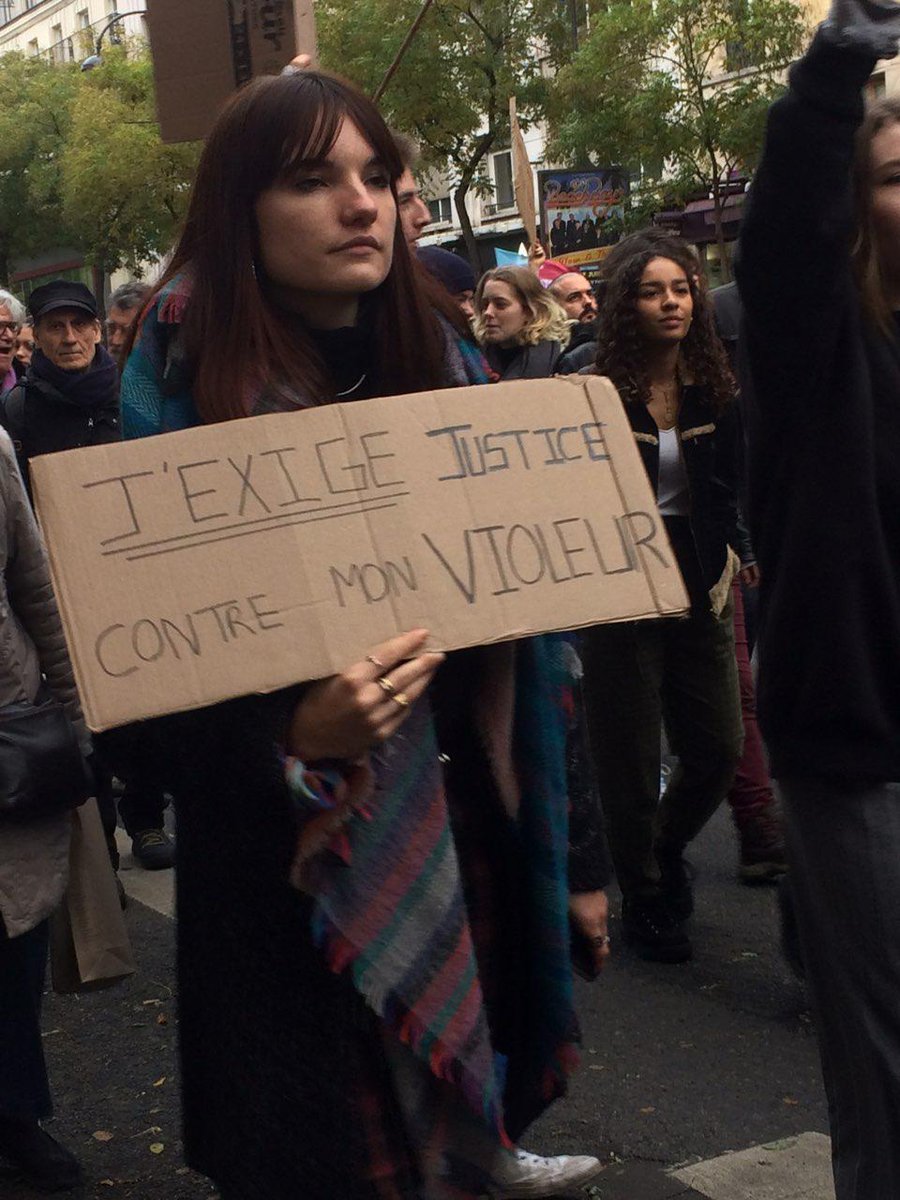 J'EXIGE JUSTICE
CONTRE MON VIOLEUR